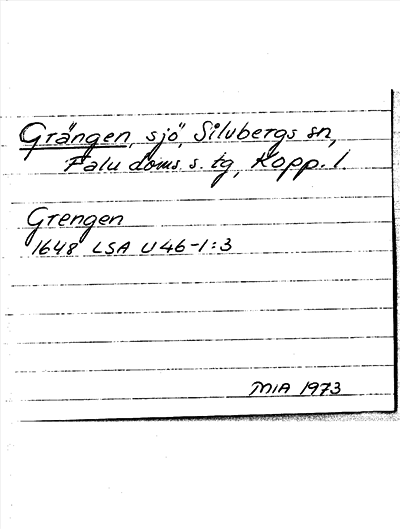 Grängen, sjö, Silvbergs sn,
Falu doms. s. tg, Kopp. l.
Grengen
1648 LSA U46-1:3
MIA 1973